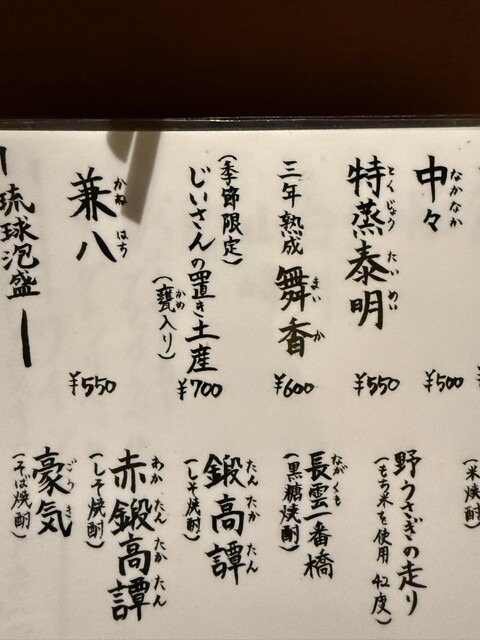 中々
なかなか
¥500
特蒸泰明
とくじょう たいめい
¥550
三年熟成 舞香
まいか
¥600
(季節限定)
じいさんの置き土産
(甕入り)
かめ
¥700
兼八
かねはち
¥550
ー琉球泡盛ー
(米焼酎)
野うさぎの走り
(もち米を使用 42度)
長雲一番橋
ながくも
(黒糖焼酎)
鍛高譚
たんたかたん
(しそ焼酎)
赤鍛高譚
あかたんたかたん
(しそ焼酎)
豪気
ごうき
(そば焼酎)